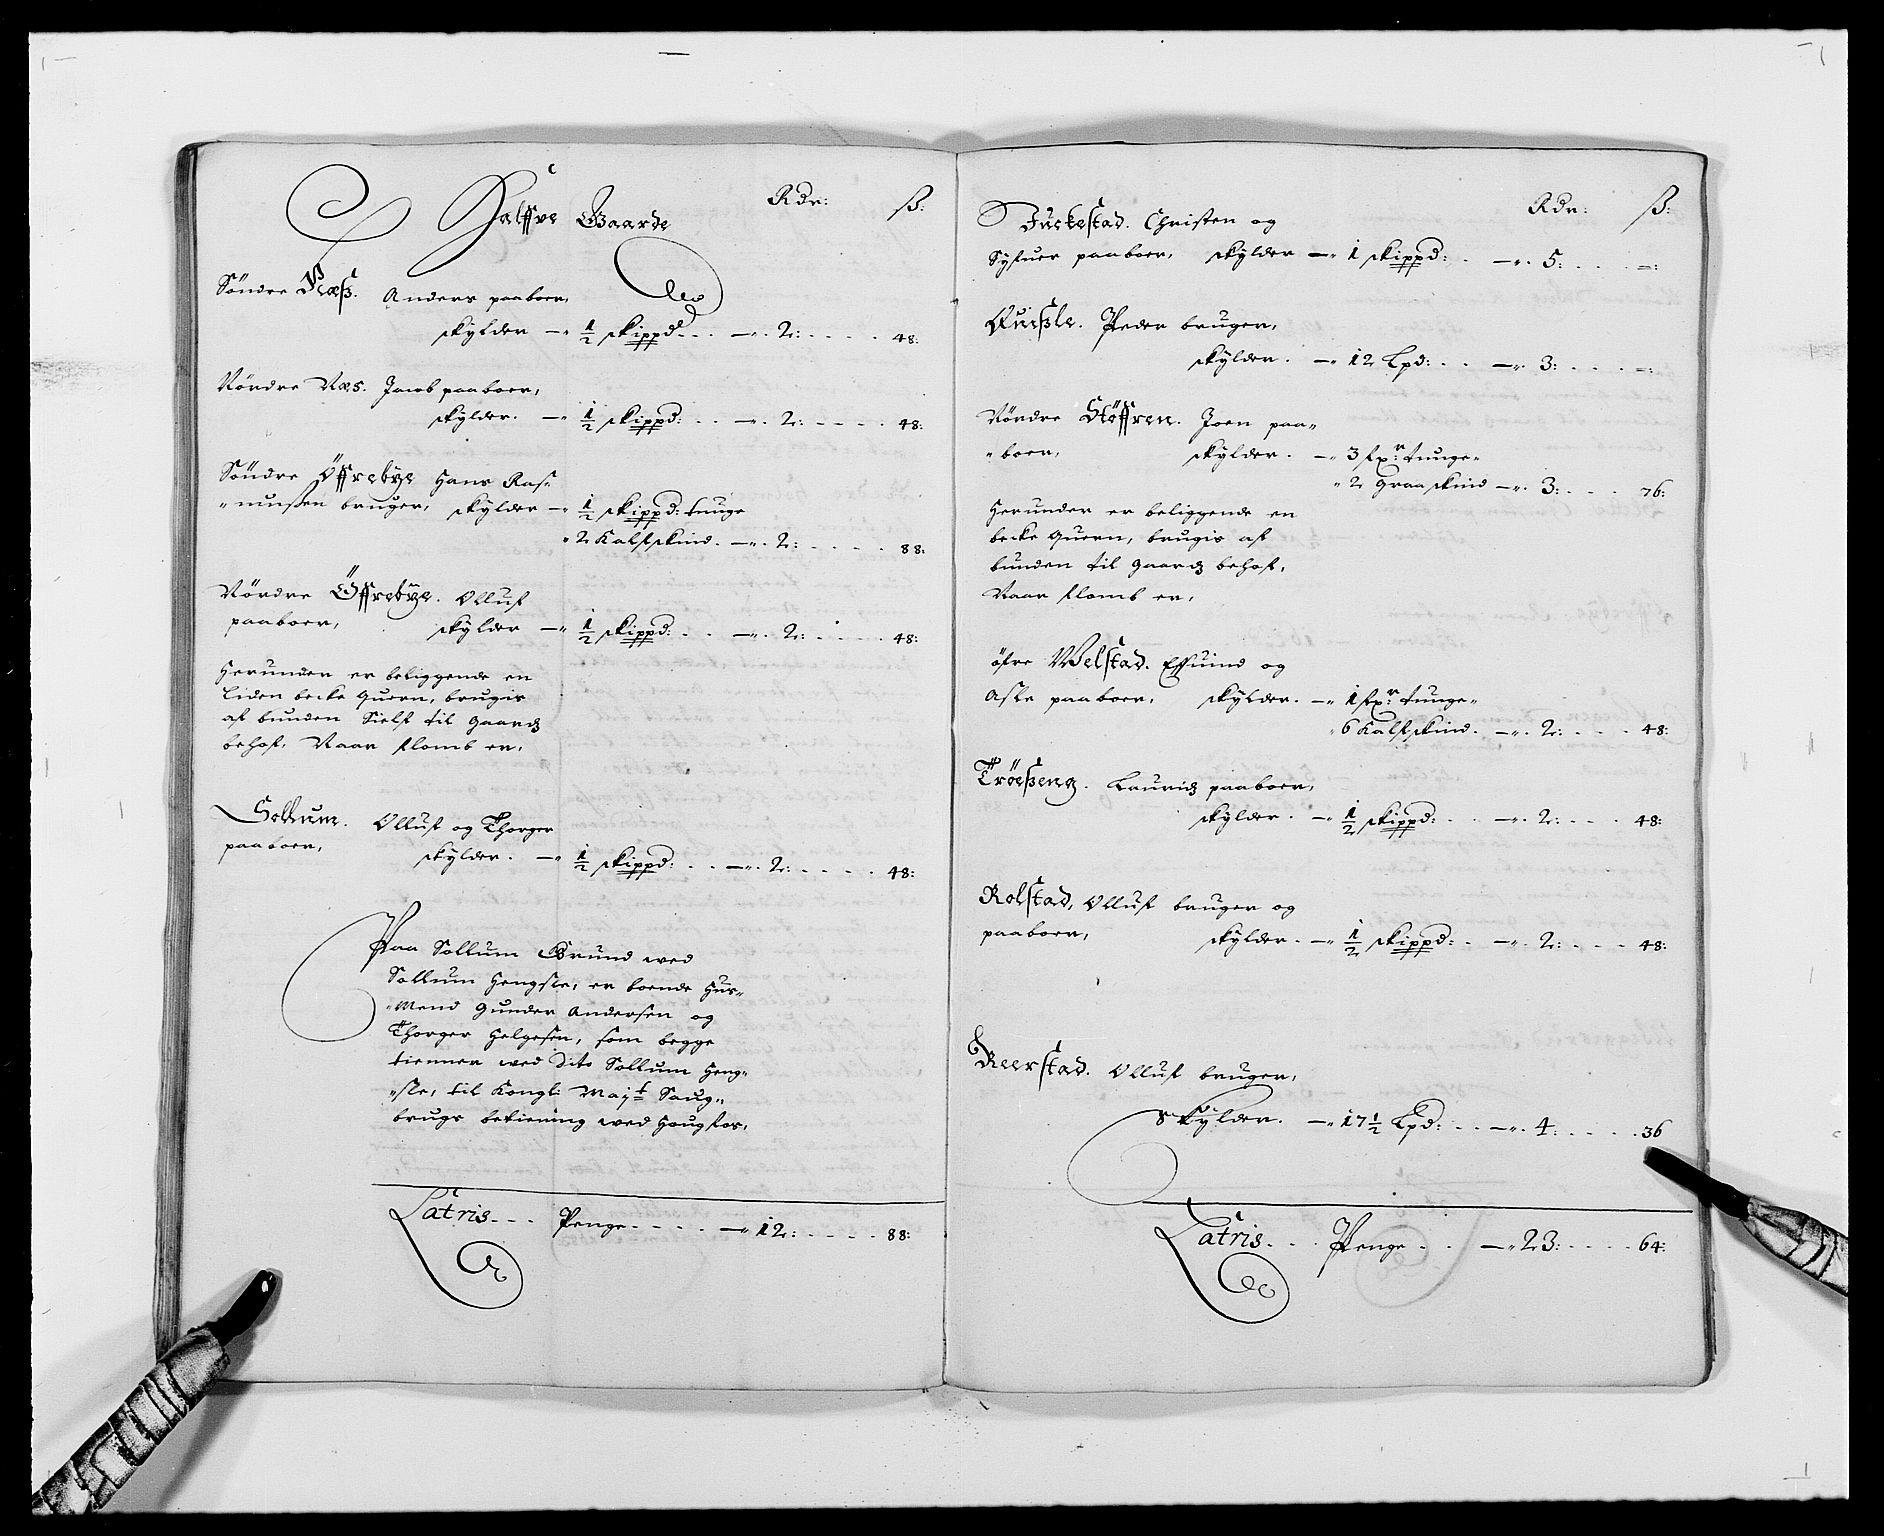 Halffve Gaarde Rdr: ß:
Söndre Næß. Anders paaboer,
skylder — 1/2 skippd: . . — 2: . . . . 48:
Nördre Næs. Jacob paaboer,
skylder. — 1/2 skippd: . . — 2: . . . . 48:
Söndre Öffrebye Hans Ras=
=mussen bruger, skylder — 1/2 skippd: tunge
2 Kalfskind. — 2: . . . . 88:
Nördre Öffrebye. Olluf
paaboer, skylder — 1/2 skippd: . . — 2: . . . . 48:
Herunder er beliggende en
liden becke Quern, brugis
af bunden Sielf til Gaardz
behof, Naar flomb er,
Sollum. Olluf og Thorger
paaboer, skylder. — 1/2 skippd: . . — 2: . . . . 48:
Paa Sollum Grund wed
Sollum Hengsle, er boende Hus=
=Mend Gunder Andersen og
Thorger Helgesen, som begge
tienner wed dito Sollum Heng=
=sle, til Kongl: Maj:t Saug=
brugs betiening wed Hougfos,
Latris . . . Penge . . . . — 12: . . . . 88:
Rdr: ß:
Juckestad. Christen og
Syfuer paaboer, skylder — 1 skippd: . . — 5: . . . —:
Quißle. Peder bruger,
skylder. — 12 Lpd: . . — 3: . . . . —:
Nördre Stöffren. Joen paa=
=boer, skylder. — 3 fxr: tunge
2 Graaskind — 3: . . . 76:
Herunder er beliggende en
becke Quern, brugis af
bunden til Gaardz behof,
Naar flomb er,
öfre Welstad. Effuind og
Asle paaboer, skylder. — 1 fxr: tunge
6 Kalfskind. — 2: . . . . 48:
Tröeßeng. Lauridz paaboer,
skylder. — 1/2 skippd: . . — 2: . . . . 48:
Rolstad, Olluf bruger og
paaboer, skylder. — 1/2 skippd: . . — 2: . . . . 48:
Reerstad. Olluf bruger,
skylder. — 17 1/2 Lpd: . . — 4: . . . . 36
Latris . . . Penge . . — 23: . . . . 64: